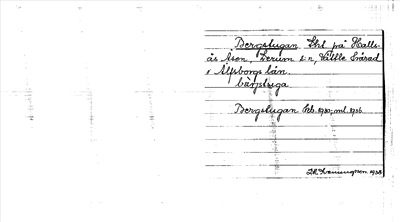 Bergstugan. Lht på Halls-
ås ägor, Lerum s:n, Vättle härad
i Älfsborgs län.
bärjstuga.
Bergstugan Lkb. 1930; ml. 1936.
1938